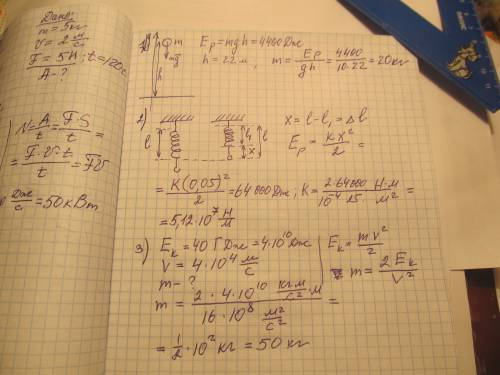 Дано:
m = 5кг
V = 2 м/с
F = 5Н ; t = 120с
A - ?
N = A/t = F·S/t =
= F·V·t/t = FV
Дж/с = 50 кВт
1) m Ep = mgh = 4400 Дж
mg h = 22 м, m = Ep/gh = 4400/10·22 = 20 кг
h
2) x = l - l₁ = Δl
l l₁ l x
Ep = kx²/2 =
= K(0,05)²/2 = 64000 Дж ; K = 2·64000/10⁻⁴·25 Н·м/м² =
= 5,12·10⁷ Н/м
3) Eк = 40 ГДж = 4·10¹⁰ Дж Eк = mv²/2
V = 4·10⁴ м/с
m - ? m = 2Eк/V²
m = 2·4·10¹⁰ кг·м/с² ·м / 16·10⁸ м²/с² =
= 1/2 · 10² кг = 50 кг